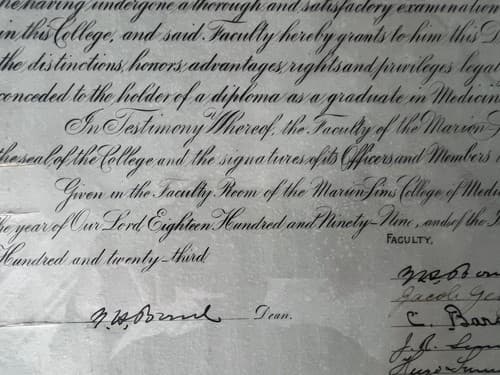 having undergone a thorough and satisfactory examination
in this College, and said Faculty hereby grants to him this
the distinctions, honors, advantages, rights and privileges
conceded to the holder of a diploma as a graduate in Medicin
In Testimony Whereof, the Faculty of the Marion
the seal of the College and the signatures of its Officers and Members
Given in the Faculty Room of the Marion-Sims College of Medi
the year of Our Lord Eighteen Hundred and Ninety-Nine, and of the
FACULTY,
Hundred and twenty-third
Dean.
Jacob
C. Bar
J. R.